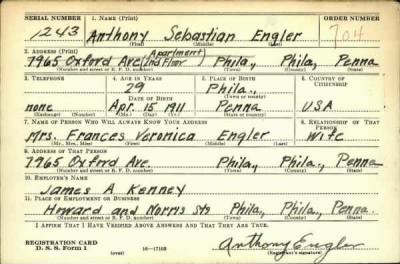 SERIAL NUMBER 1. NAME (Print) ORDER NUMBER
1243 Anthony Sebastian Engler 704
(First) (Middle) (Last)
2. ADDRESS (Print)
7965 Oxford Ave (Apartment 2nd Floor) Phila., Phila, Penna
(Number and street or R. F. D. number) (Town) (County) (State)
3. TELEPHONE 4. AGE IN YEARS 5. PLACE OF BIRTH 6. COUNTRY OF CITIZENSHIP
29 Phila.,
DATE OF BIRTH (Town or county)
none Apr. 15 1911 Penna USA
(Exchange) (Number) (Mo.) (Day) (Yr.) (State or country)
7. NAME OF PERSON WHO WILL ALWAYS KNOW YOUR ADDRESS 8. RELATIONSHIP OF THAT PERSON
Mrs. Frances Veronica Engler Wife
(Mr., Mrs., Miss) (First) (Middle) (Last)
9. ADDRESS OF THAT PERSON
7965 Oxford Ave. Phila., Phila., Penna
(Number and street or R. F. D. number) (Town) (County) (State)
10. EMPLOYER'S NAME
James A Kenney
11. PLACE OF EMPLOYMENT OR BUSINESS
Howard and Norris Sts Phila., Phila., Penna.
(Number and street or R. F. D. number) (Town) (County) (State)
I AFFIRM THAT I HAVE VERIFIED ABOVE ANSWERS AND THAT THEY ARE TRUE.
REGISTRATION CARD
D. S. S. Form 1 (over) 16—17105 Anthony Engler